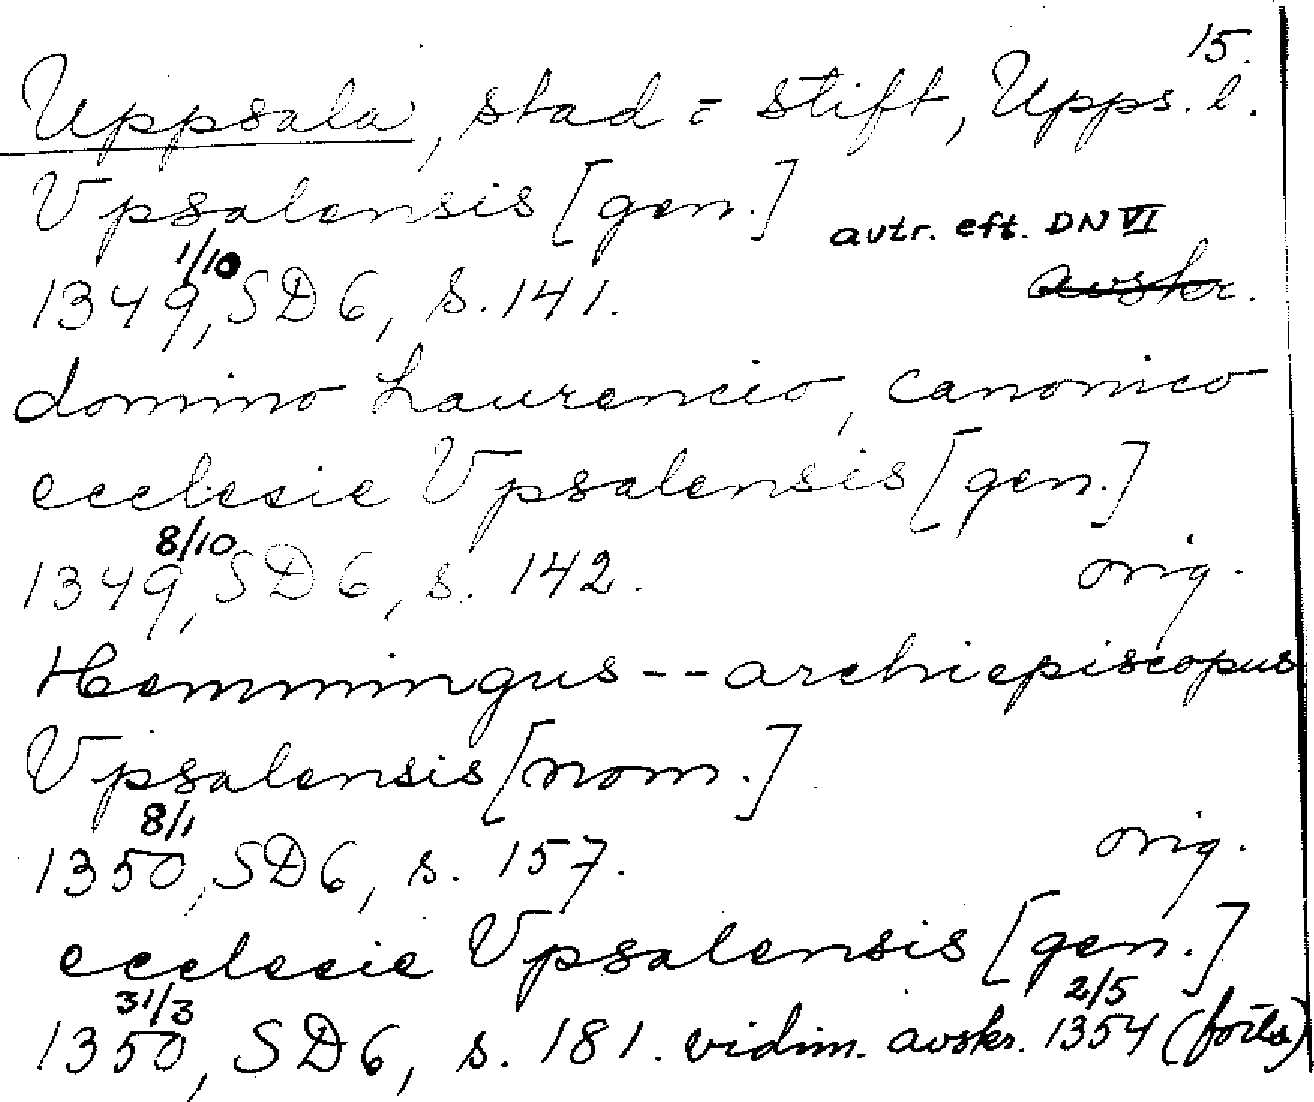 15.
Uppsala, stad = stift, Upps. l.
Vpsalensis [gen.]
avtr. eft. DN VI
1/10
1349, SD 6, s. 141. avskr.
domino Laurencio, canonico
ecclesie Vpsalensis [gen.]
8/10
1349, SD 6, s. 142. orig.
Hemmingus -- archiepiscopus
Vpsalensis [nom.]
8/1
1350, SD 6, s. 157. orig.
ecclesie Vpsalensis [gen.]
31/3 2/5
1350, SD 6, s. 181. vidim. avskr. 1354 (forts)